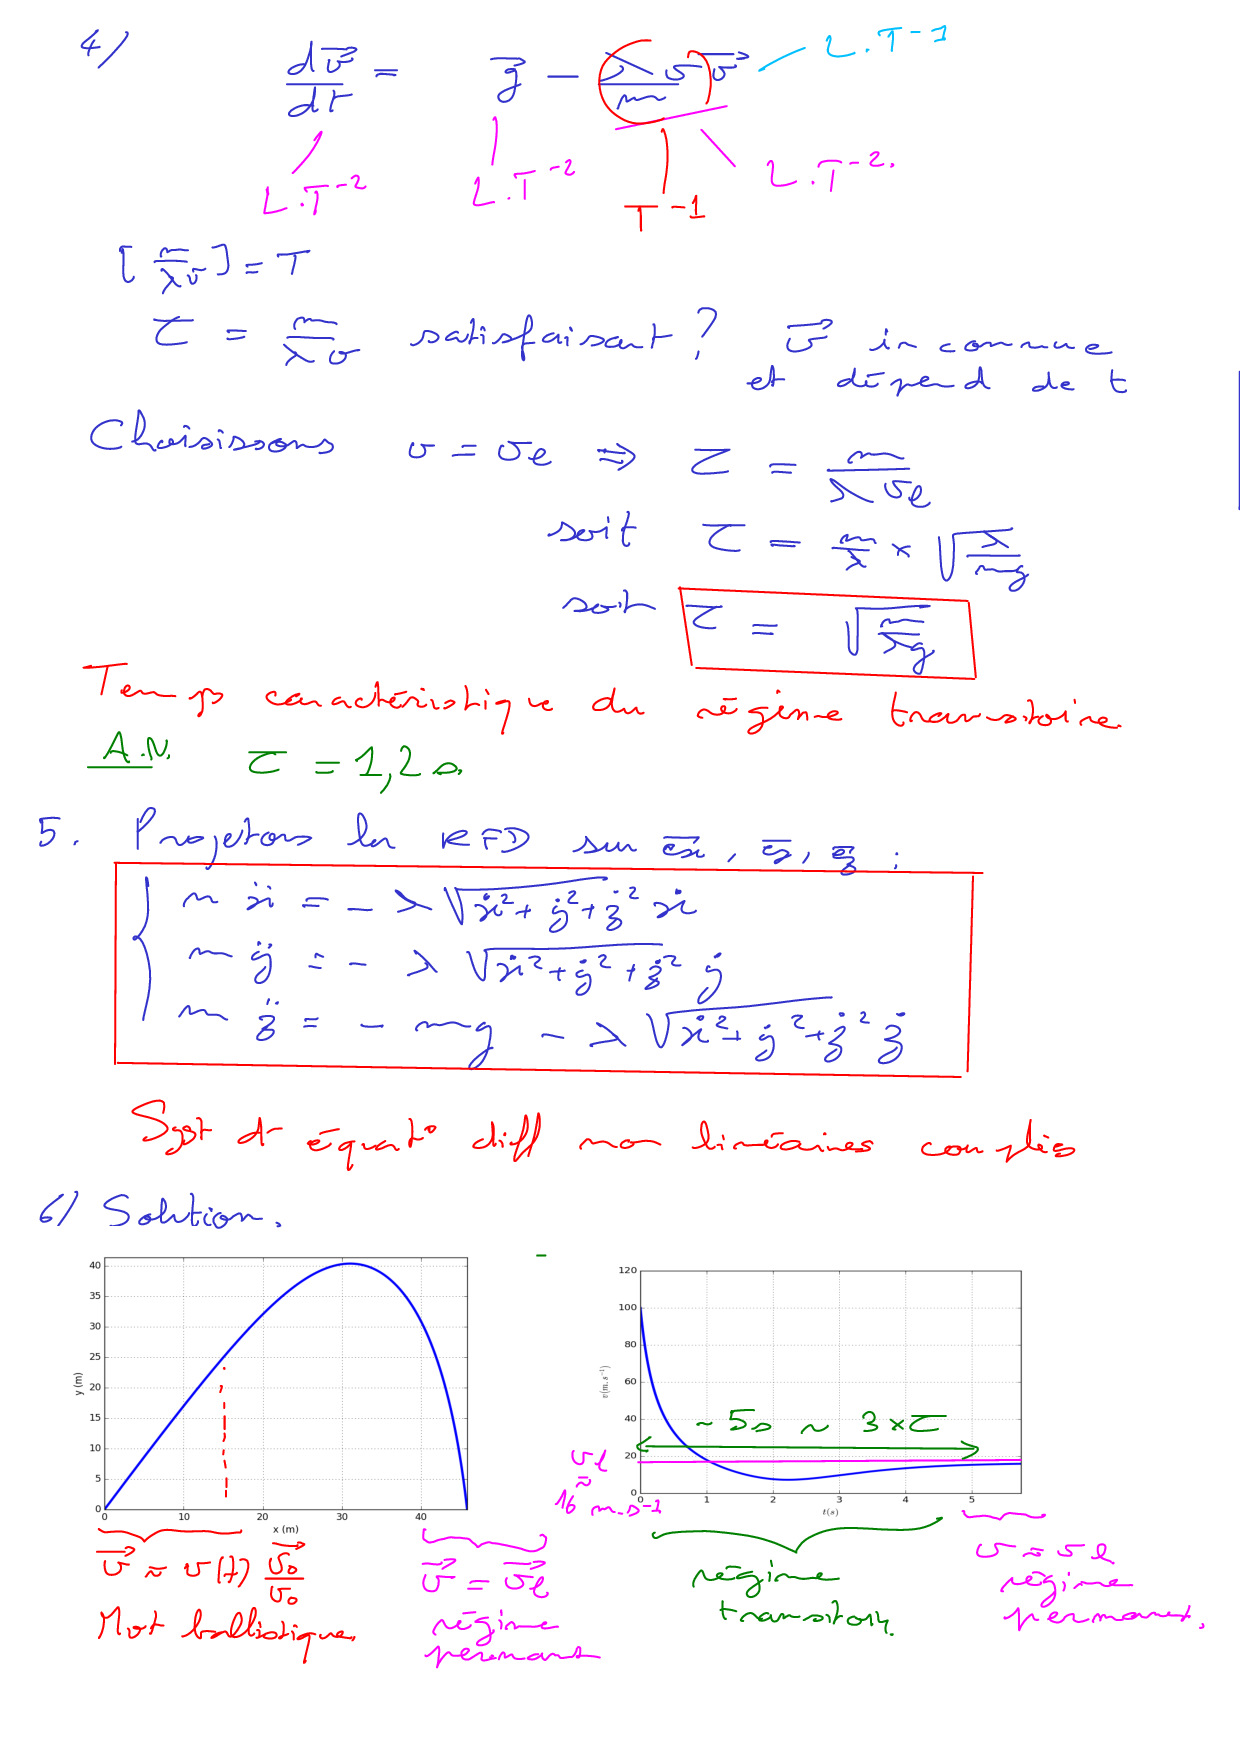 4/
dv⃗/dt = g⃗ − (λ v/m) v⃗ L.T⁻¹
L.T⁻² L.T⁻² T⁻¹ L.T⁻².
[m/λv] = T
τ = m/λv satisfaisant ? v⃗ inconnue
et dépend de t
Choisissons v = vℓ ⇒ τ = m/λvℓ
soit τ = m/λ × √(λ/mg)
soit τ = √(m/λg)
Temps caractéristique du régime transitoire.
A.N. τ = 1,2 s.
5. Projetons la RFD sur ex⃗, ey⃗, ez⃗ :
m ẍ = − λ √(ẋ² + ẏ² + ż²) ẋ
m ÿ = − λ √(ẋ² + ẏ² + ż²) ẏ
m z̈ = − mg − λ √(ẋ² + ẏ² + ż²) ż
Syst d' équat° diff non linéaires couplés
6/ Solution.
y (m)
40
35
30
25
20
15
10
5
0
0 10 20 30 40
x (m)
v(m.s⁻¹)
120
100
80
60
40
20
0
0 1 2 3 4 5
t(s)
~ 5s ~ 3 × τ
vℓ
≈
16 m.s⁻¹
v⃗ ≈ v(t) v₀⃗/v₀
Mvt ballistique.
v⃗ = vℓ⃗
régime
permanent
régime
transitoire.
v ≈ vℓ
régime
permanent.